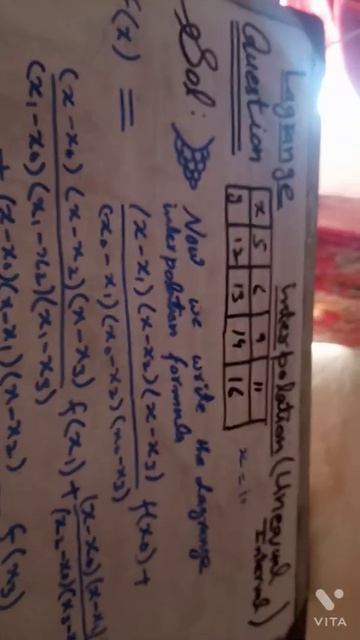 Lagrange interpolation (Unequal Interval)
Question
x 5 6 9 11
y 12 13 14 16
x = 11
Sol: Now we write the Lagrange
interpolation formula
f(x) = (x-x₁)(x-x₂)(x-x₃) f(x₀) +
(x₀-x₁)(x₀-x₂)(x₀-x₃)
(x-x₀)(x-x₂)(x-x₃) f(x₁) + (x-x₀)(x-x₁)
(x₁-x₀)(x₁-x₂)(x₁-x₃) (x₂-x₀)(x₂-x
+ (x-x₀)(x-x₁)(x-x₂) f(x₃)
VITA